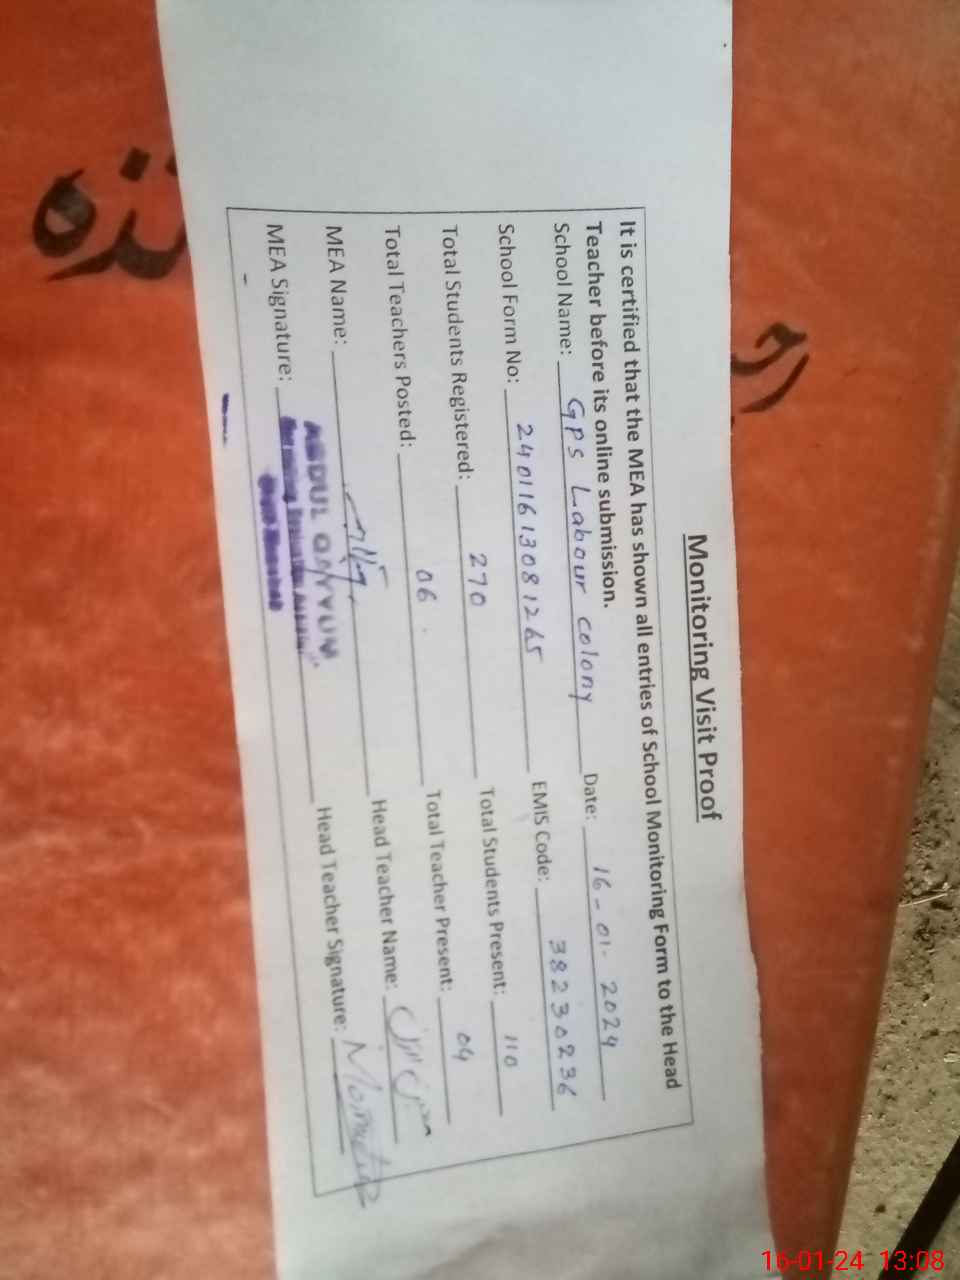 Monitoring Visit Proof
It is certified that the MEA has shown all entries of School Monitoring Form to the Head
Teacher before its online submission.
School Name: GPS Labour colony Date: 16-01-2024
School Form No: 24011613081265 EMIS Code: 38230236
Total Students Registered: 270 Total Students Present: 110
Total Teachers Posted: 06 Total Teacher Present: 04
MEA Name: Head Teacher Name:
MEA Signature: ABDUL QAYYUM Head Teacher Signature:
16-01-24 13:08